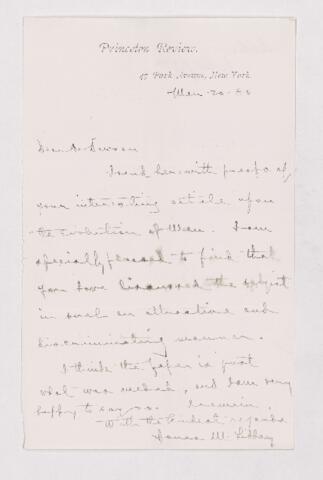 Princeton Review.
47 Park Avenue, New York.
Dear Dr Dawson
I send herewith proofs of
your interesting article upon
the evolution of Man. I am
specially pleased to find that
you have discussed the subject
in such an attractive and
discriminating manner.
I think the paper is just
what was needed, and am very
happy to say so. I remain,
With the kindest regards
M. Libbey